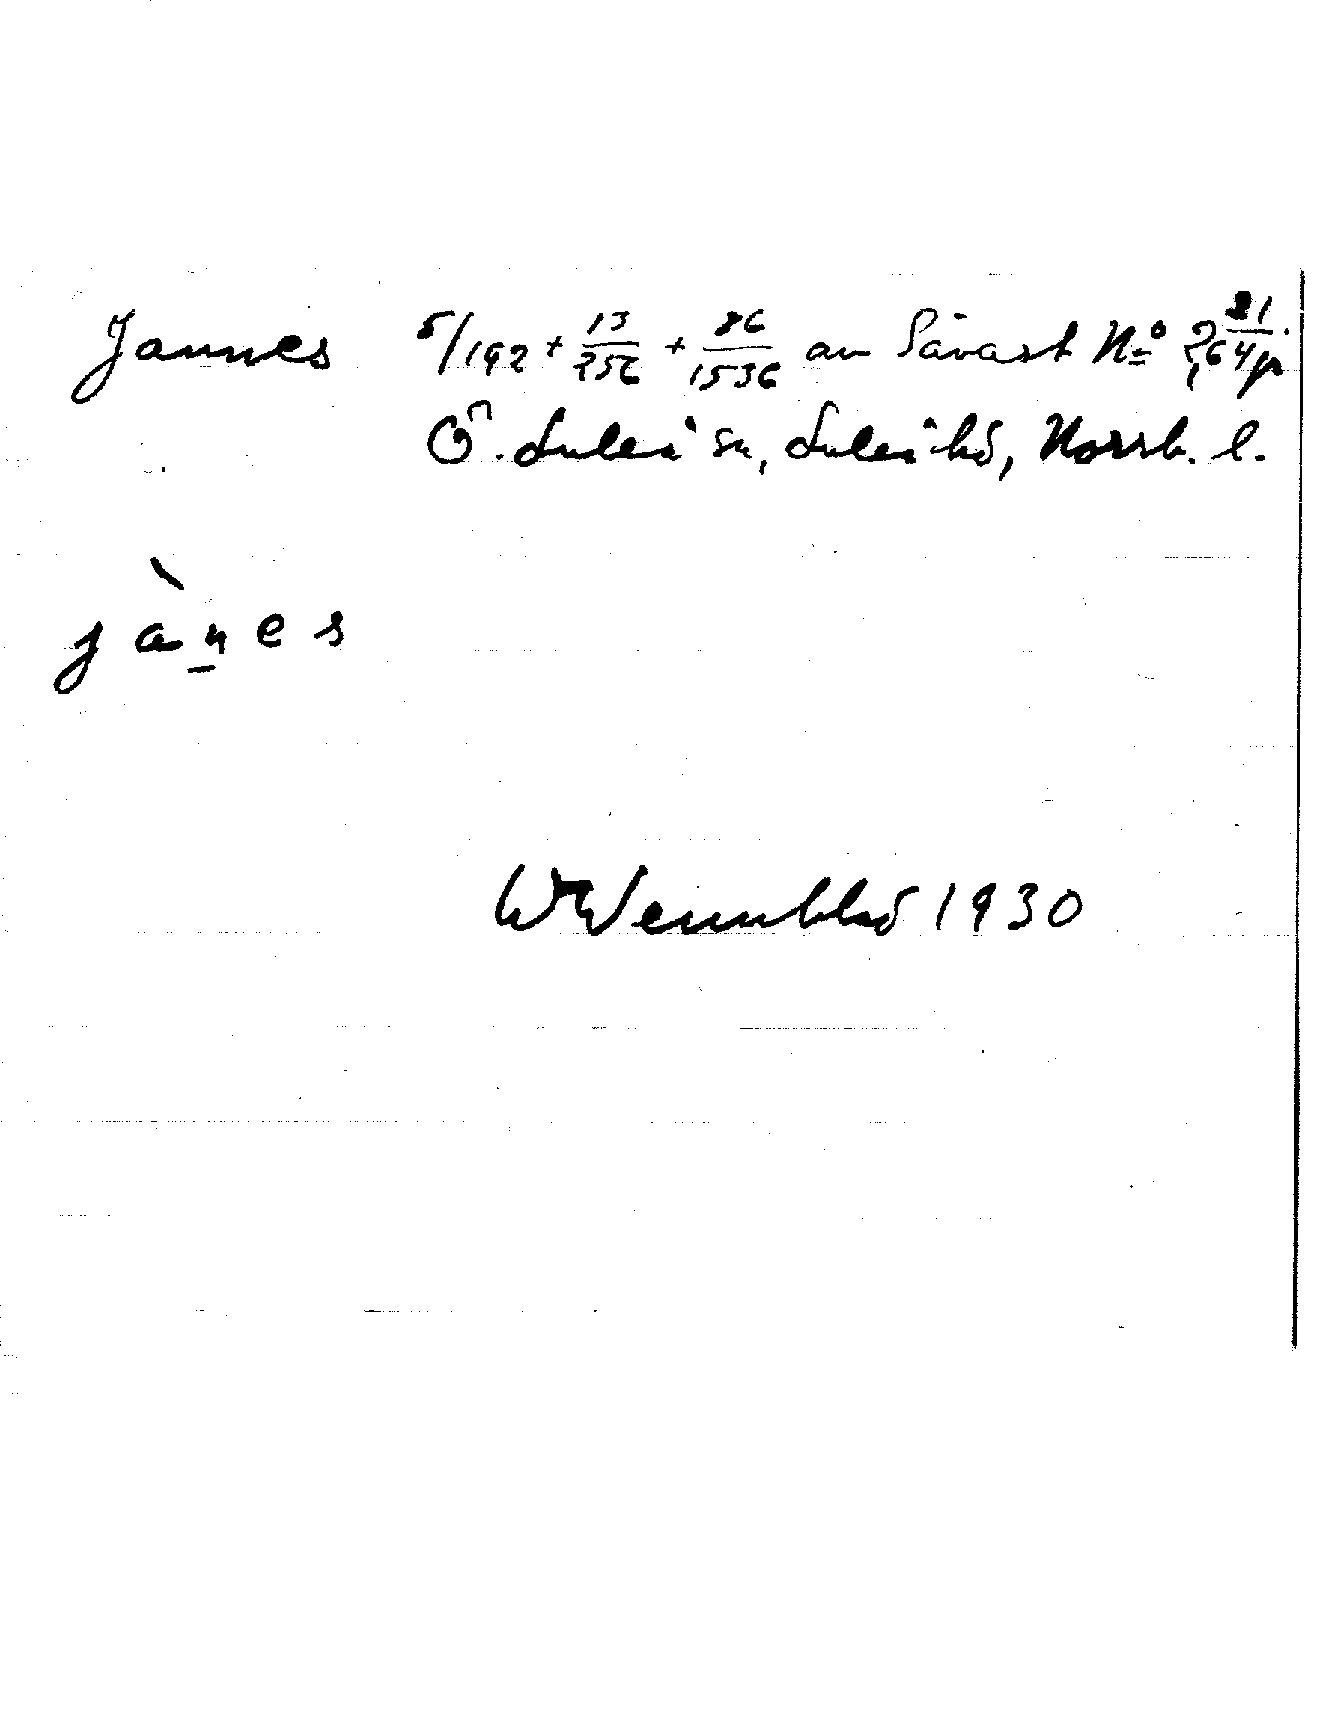 Jannes 5/192 + 13/256 + 86/1536 av Sävast Nº 2, 6 21/64
Ö. Luleå sn, Luleå hd, Norrb. l.
jànes
W Wennblad 1930